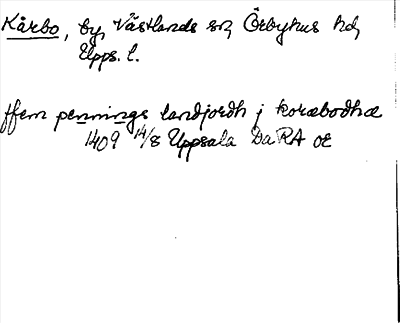 Kårbo, by, Västlands sn, Örbyhus hd,
Upps. l.
ffem pennings landjordh j koræbodhæ
1409 14/8 Uppsala DaRA or